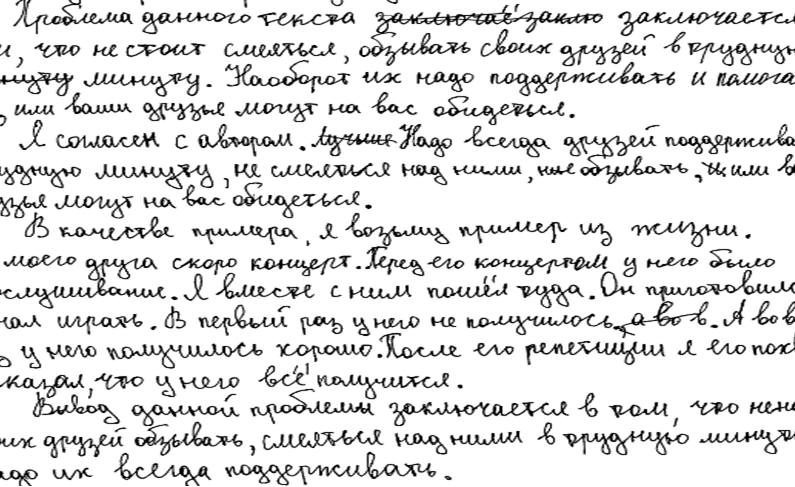 Проблема данного текста заключаеё заклю заключается
и, что не стоит смеяться, обзывать своих друзей в трудную
минуту. Наоборот их надо поддерживать и помога
, или ваши друзья могут на вас обидеться.
Я согласен с автором. Лучше Надо всегда друзей поддержива
удную минуту, не смеяться над ними, обзывать, или в
узья могут на вас обидеться.
В качестве примера, я возьму пример из жизни.
моего друга скоро концерт. Перед его концертом у него было
ослушивание. Я вместе с ним пошёл туда. Он приготовилс
чал играть. В первый раз у него не получилось, а во в. А во в
у него получилось хорошо. После его репетиции я его пох
сказал, что у него всё получится.
Вывод данной проблемы заключается в том, что нен
оих друзей обзывать, смеяться над ними в трудную минут
адо их всегда поддерживать.